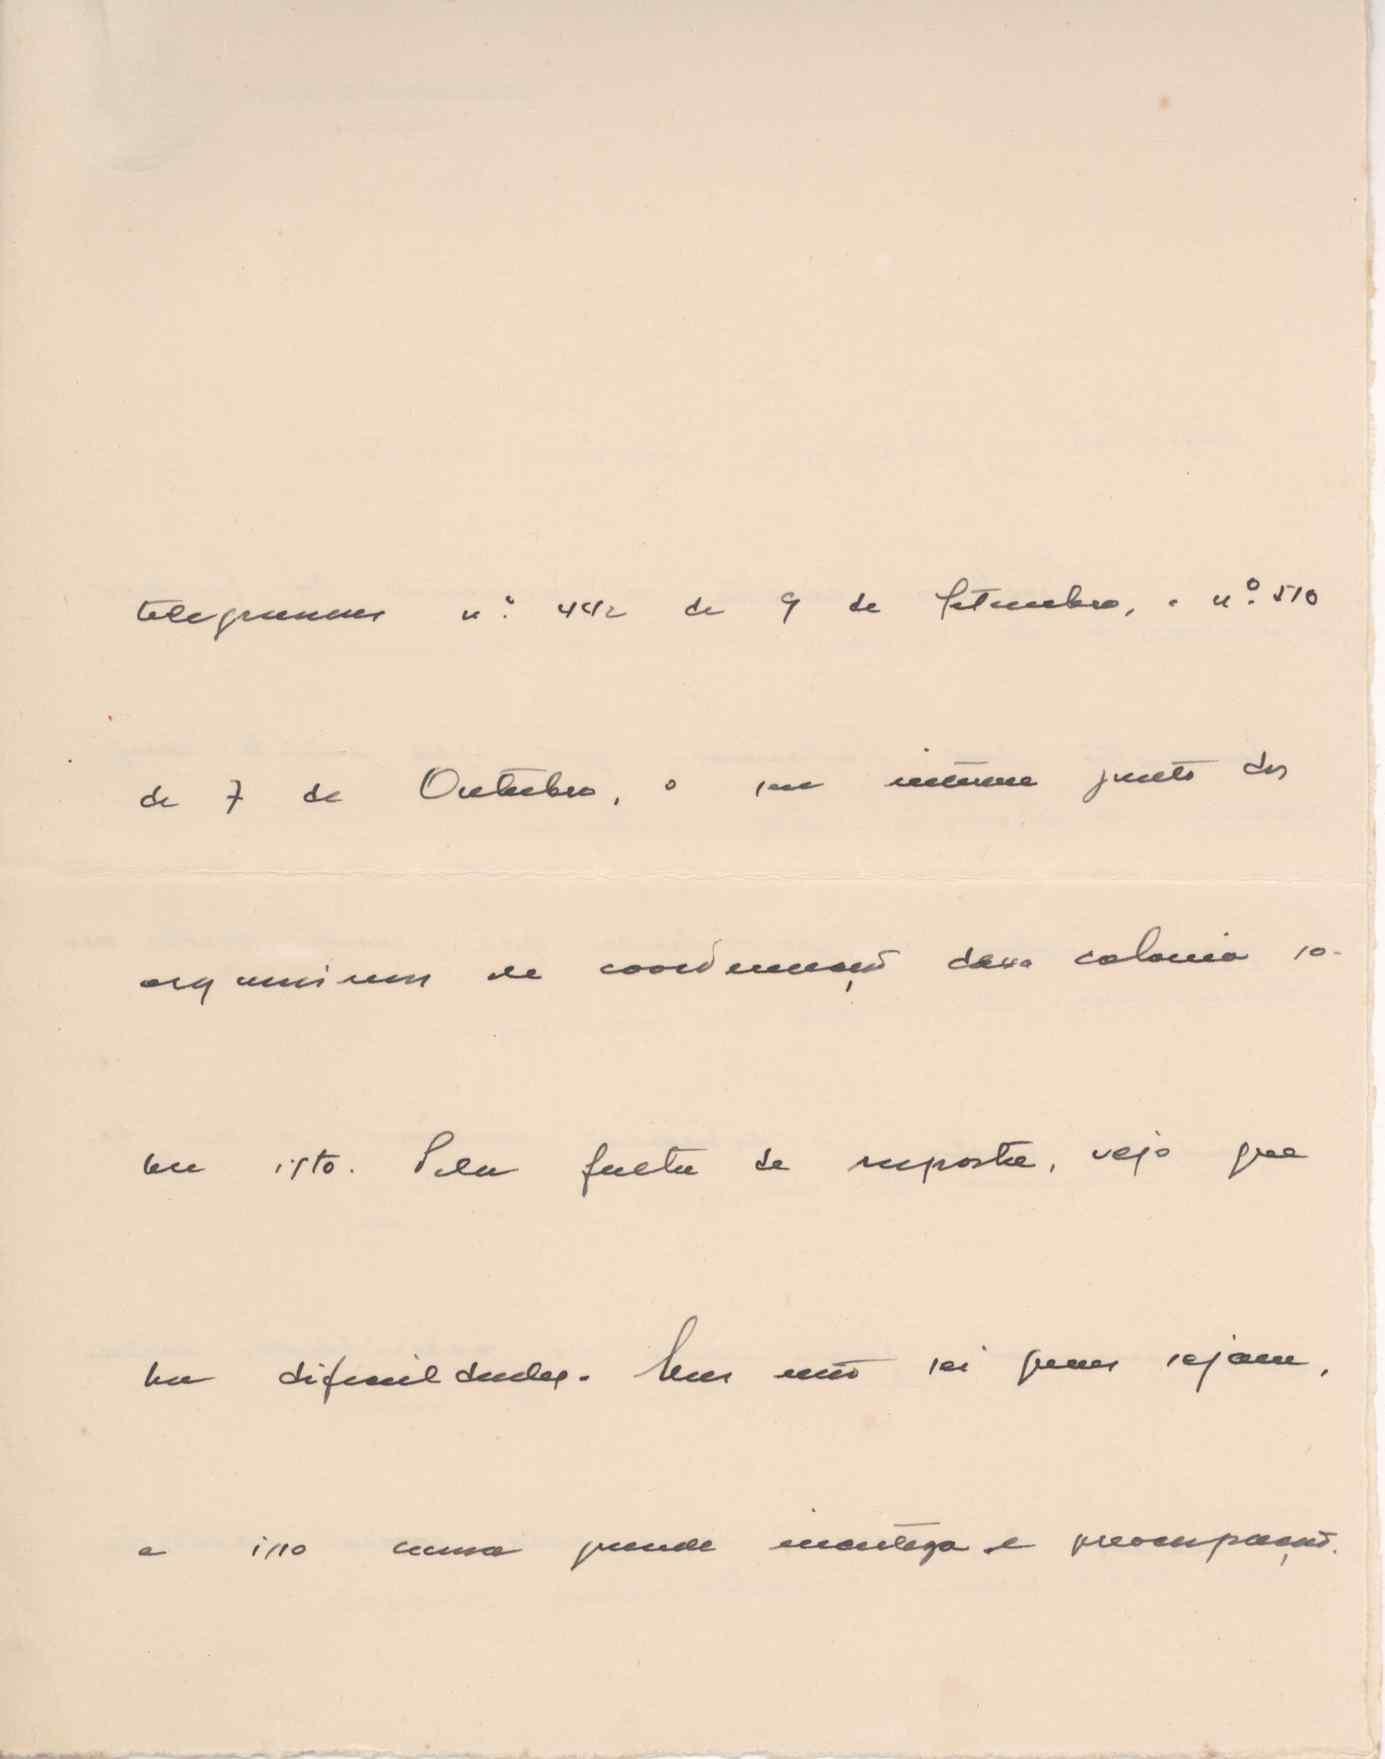 telegramas nº 442 de 9 de Setembro, e nº 510
de 7 de Outubro, o seu interesse junto dos
organismos de coordenação dessa colonia so-
bre isto. Pela falta de resposta, vejo que
ha dificuldades. Mas não sei quais sejam,
e isso causa grande incerteza e preocupação.